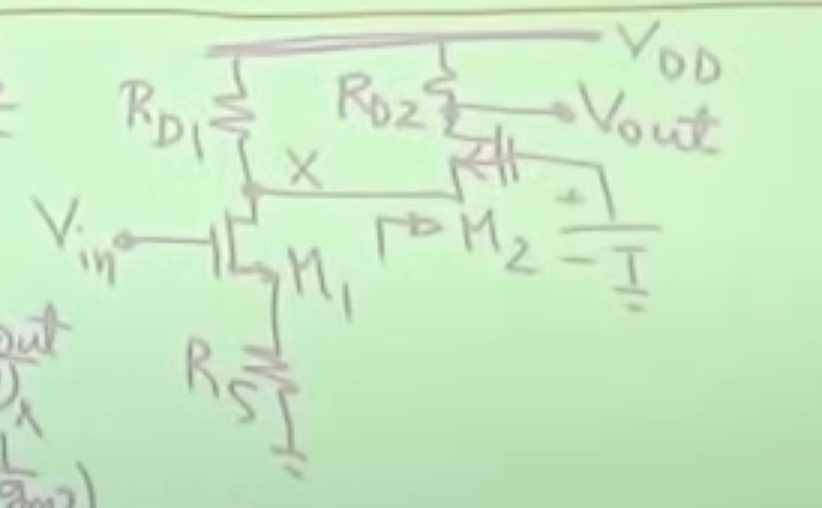 V_DD
R_D1
R_D2
Vout
X
V_in
M_1
M_2
+
-
R_S
out
x
1
gm2)